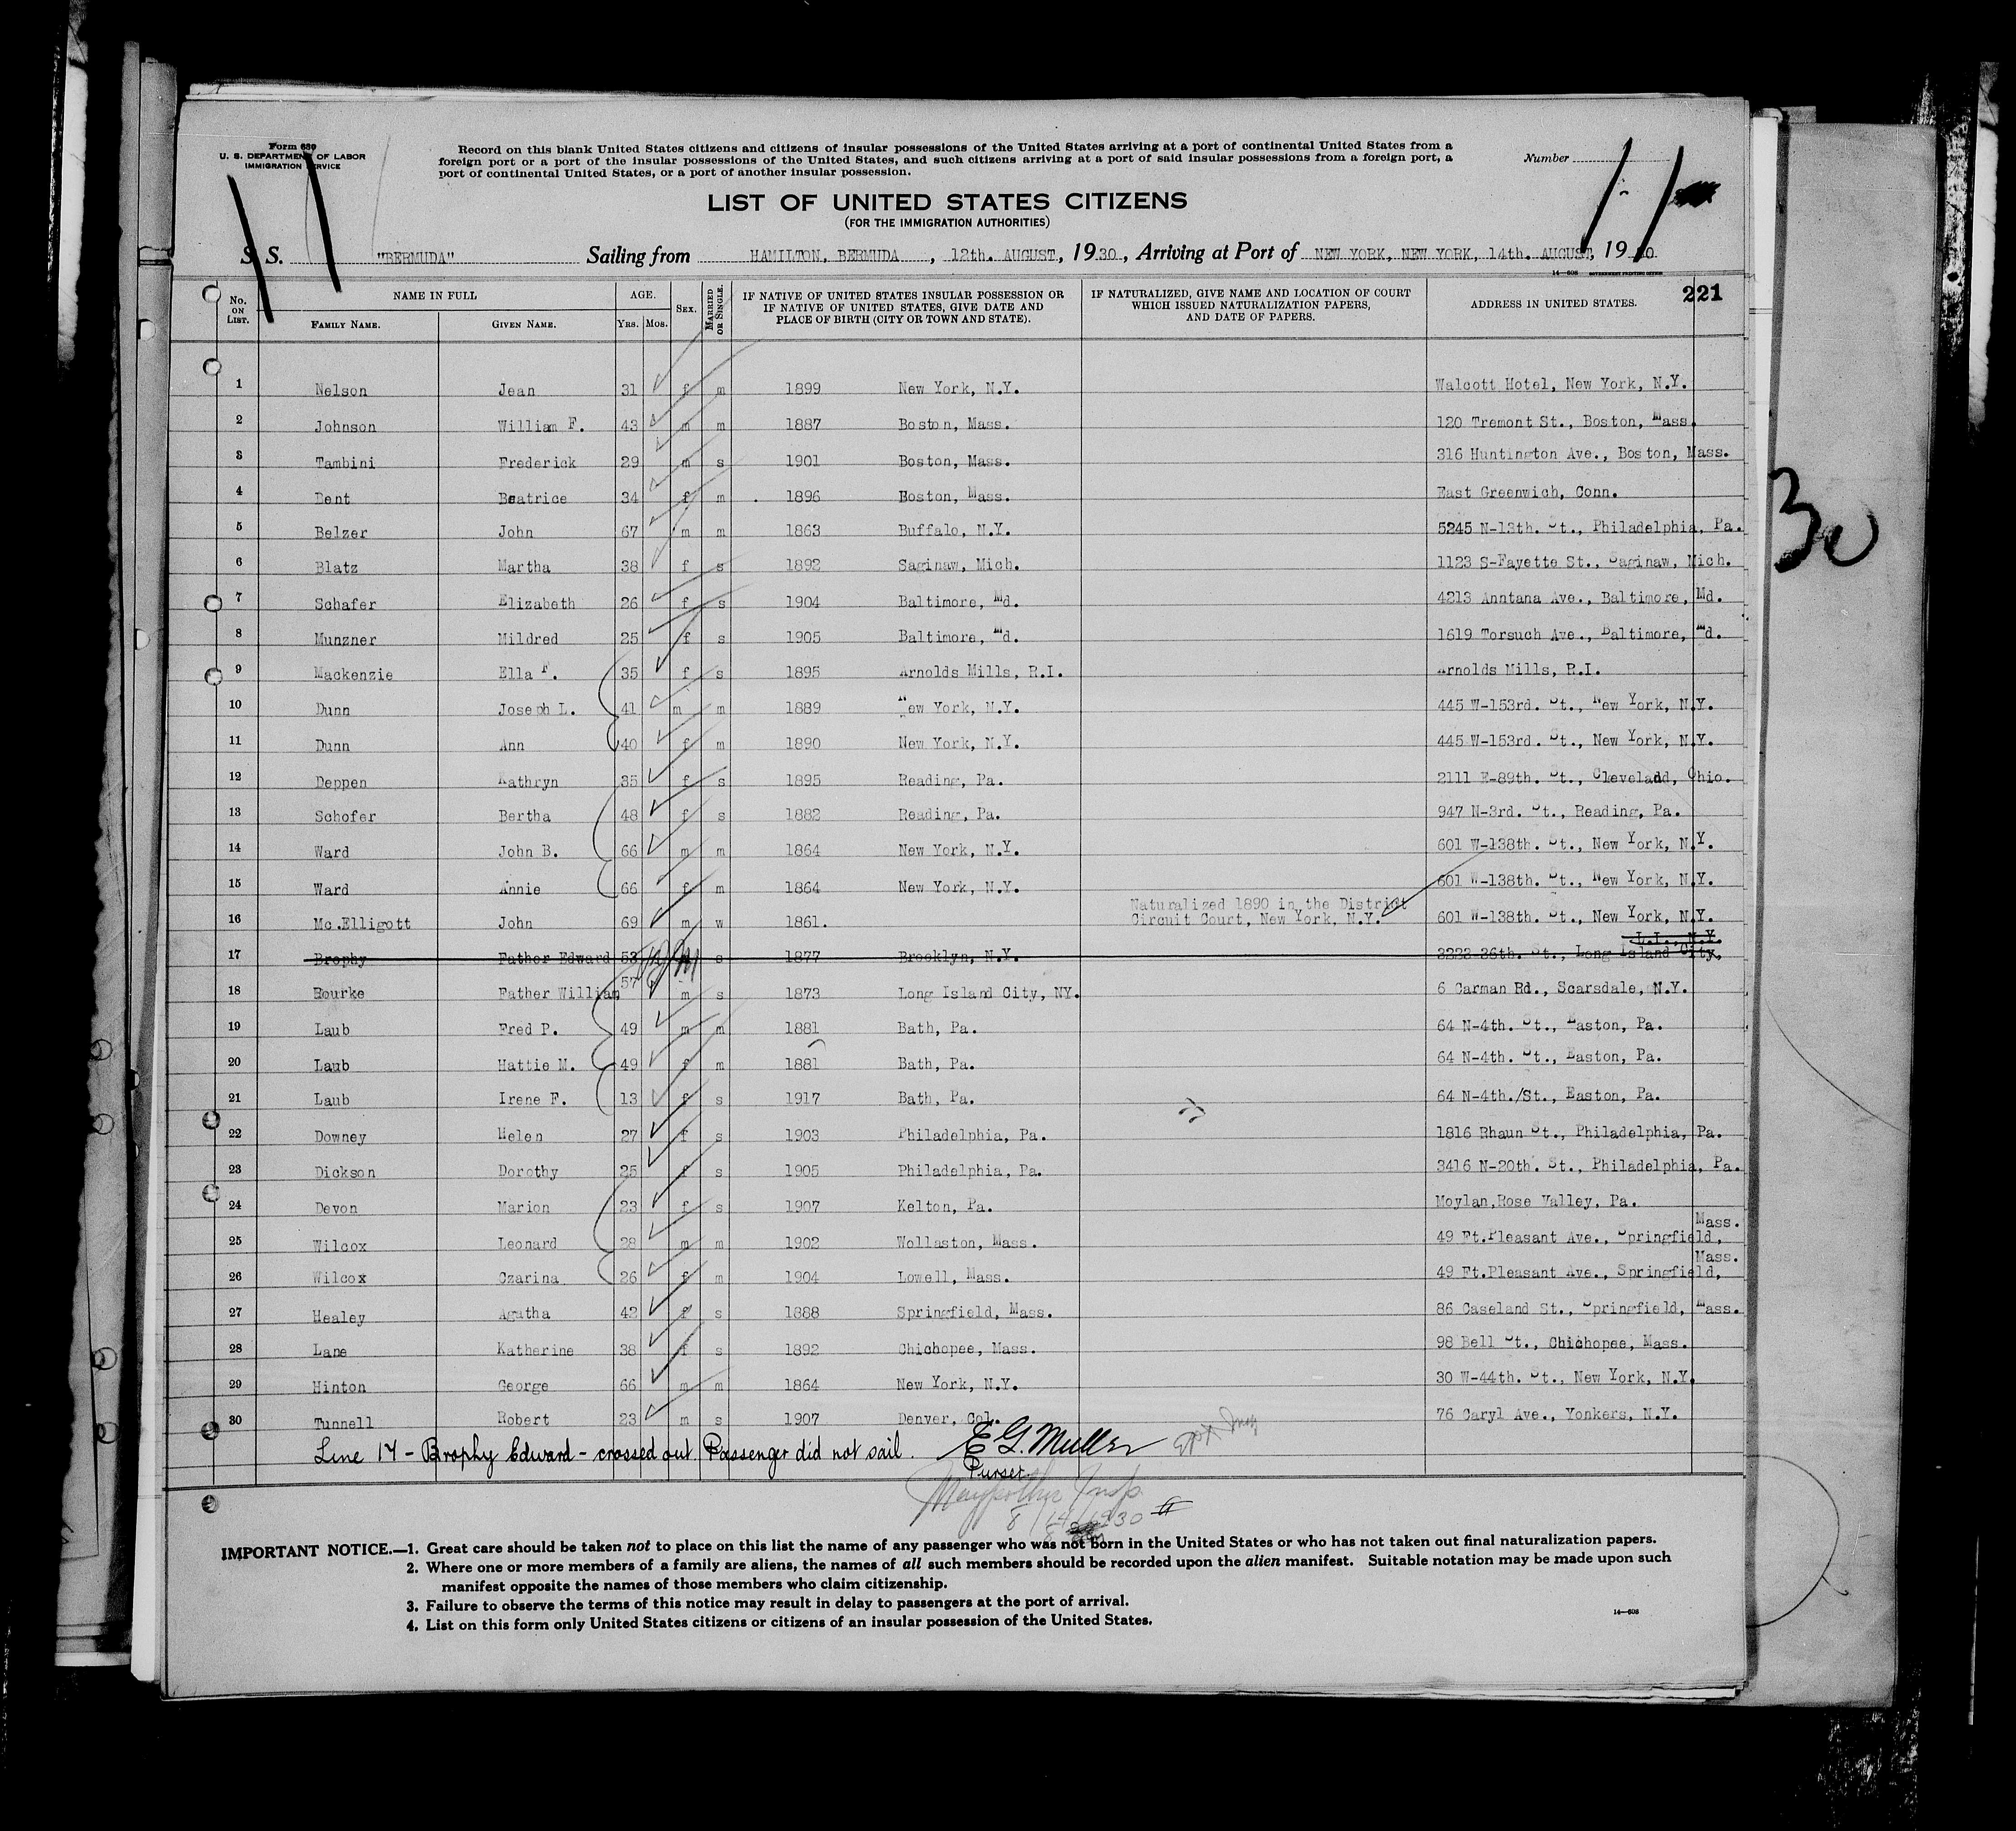 Form 630
U. S. DEPARTMENT OF LABOR
IMMIGRATION SERVICE
Record on this blank United States citizens and citizens of insular possessions of the United States arriving at a port of continental United States from a
foreign port or a port of the insular possessions of the United States, and such citizens arriving at a port of said insular possessions from a foreign port, a
port of continental United States, or a port of another insular possession.
Number
LIST OF UNITED STATES CITIZENS
(FOR THE IMMIGRATION AUTHORITIES)
S. S. "BERMUDA" Sailing from HAMILTON, BERMUDA, 12th. AUGUST, 1930, Arriving at Port of NEW YORK, NEW YORK, 14th. AUGUST, 1930
14—608 GOVERNMENT PRINTING OFFICE
221
No. ON LIST. NAME IN FULL FAMILY NAME. GIVEN NAME. AGE. YRS. MOS. SEX. MARRIED OR SINGLE. IF NATIVE OF UNITED STATES INSULAR POSSESSION OR IF NATIVE OF UNITED STATES, GIVE DATE AND PLACE OF BIRTH (CITY OR TOWN AND STATE). IF NATURALIZED, GIVE NAME AND LOCATION OF COURT WHICH ISSUED NATURALIZATION PAPERS, AND DATE OF PAPERS. ADDRESS IN UNITED STATES.
1 Nelson Jean 31 f m 1899 New York, N.Y. Walcott Hotel, New York, N.Y.
2 Johnson William F. 43 m m 1887 Boston, Mass. 120 Tremont St., Boston, Mass.
3 Tambini Frederick 29 m s 1901 Boston, Mass. 316 Huntington Ave., Boston, Mass.
4 Dent Beatrice 34 f m 1896 Boston, Mass. East Greenwich, Conn.
5 Belzer John 67 m m 1863 Buffalo, N.Y. 5245 N-13th. St., Philadelphia, Pa.
6 Blatz Martha 38 f s 1892 Saginaw, Mich. 1123 S-Fayette St., Saginaw, Mich.
7 Schafer Elizabeth 26 f s 1904 Baltimore, Md. 4213 Anntana Ave., Baltimore, Md.
8 Munzner Mildred 25 f s 1905 Baltimore, Md. 1619 Torsuch Ave., Baltimore, Md.
9 Mackenzie Ella F. 35 f s 1895 Arnolds Mills, R.I. Arnolds Mills, R.I.
10 Dunn Joseph L. 41 m m 1889 New York, N.Y. 445 W-153rd. St., New York, N.Y.
11 Dunn Ann 40 f m 1890 New York, N.Y. 445 W-153rd. St., New York, N.Y.
12 Deppen Kathryn 35 f s 1895 Reading, Pa. 2111 E-89th. St., Cleveladd, Ohio.
13 Schofer Bertha 48 f s 1882 Reading, Pa. 947 N-3rd. St., Reading, Pa.
14 Ward John B. 66 m m 1864 New York, N.Y. 601 W-138th. St., New York, N.Y.
15 Ward Annie 66 f m 1864 New York, N.Y. 601 W-138th. St., New York, N.Y.
16 Mc.Elligott John 69 m w 1861. Naturalized 1890 in the District Circuit Court, New York, N.Y. 601 W-138th. St., New York, N.Y.
17 Brophy Father Edward 53 s 1877 Brooklyn, N.Y. 3222-36th. St., Long Island City, L.I., N.Y.
18 Rourke Father William 57 m s 1873 Long Island City, NY. 6 Carman Rd., Scarsdale, N.Y.
19 Laub Fred P. 49 m m 1881 Bath, Pa. 64 N-4th. St., Easton, Pa.
20 Laub Hattie M. 49 f m 1881 Bath, Pa. 64 N-4th. St., Easton, Pa.
21 Laub Irene F. 13 f s 1917 Bath, Pa. 64 N-4th./St., Easton, Pa.
22 Downey Helen 27 f s 1903 Philadelphia, Pa. 1816 Rhaun St., Philadelphia, Pa.
23 Dickson Dorothy 25 f s 1905 Philadelphia, Pa. 3416 N-20th. St., Philadelphia, Pa.
24 Devon Marion 23 f s 1907 Kelton, Pa. Moylan,Rose Valley, Pa.
25 Wilcox Leonard 28 m m 1902 Wollaston, Mass. 49 Ft.Pleasant Ave., Springfield, Mass.
26 Wilcox Czarina 26 f m 1904 Lowell, Mass. 49 Ft.Pleasant Ave., Springfield, Mass.
27 Healey Agatha 42 f s 1888 Springfield, Mass. 86 Caseland St., Springfield, Mass.
28 Lane Katherine 38 f s 1892 Chichopee, Mass. 98 Bell St., Chichopee, Mass.
29 Hinton George 66 m m 1864 New York, N.Y. 30 W-44th. St., New York, N.Y.
30 Tunnell Robert 23 m s 1907 Denver, Col. 76 Caryl Ave., Yonkers, N.Y.
Line 17 - Brophy Edward - crossed out Passenger did not sail. E G. Muller
Purser
Insp.
8/14/1930
IMPORTANT NOTICE.—1. Great care should be taken not to place on this list the name of any passenger who was not born in the United States or who has not taken out final naturalization papers.
2. Where one or more members of a family are aliens, the names of all such members should be recorded upon the alien manifest. Suitable notation may be made upon such
manifest opposite the names of those members who claim citizenship.
3. Failure to observe the terms of this notice may result in delay to passengers at the port of arrival.
4. List on this form only United States citizens or citizens of an insular possession of the United States.
14—608
30